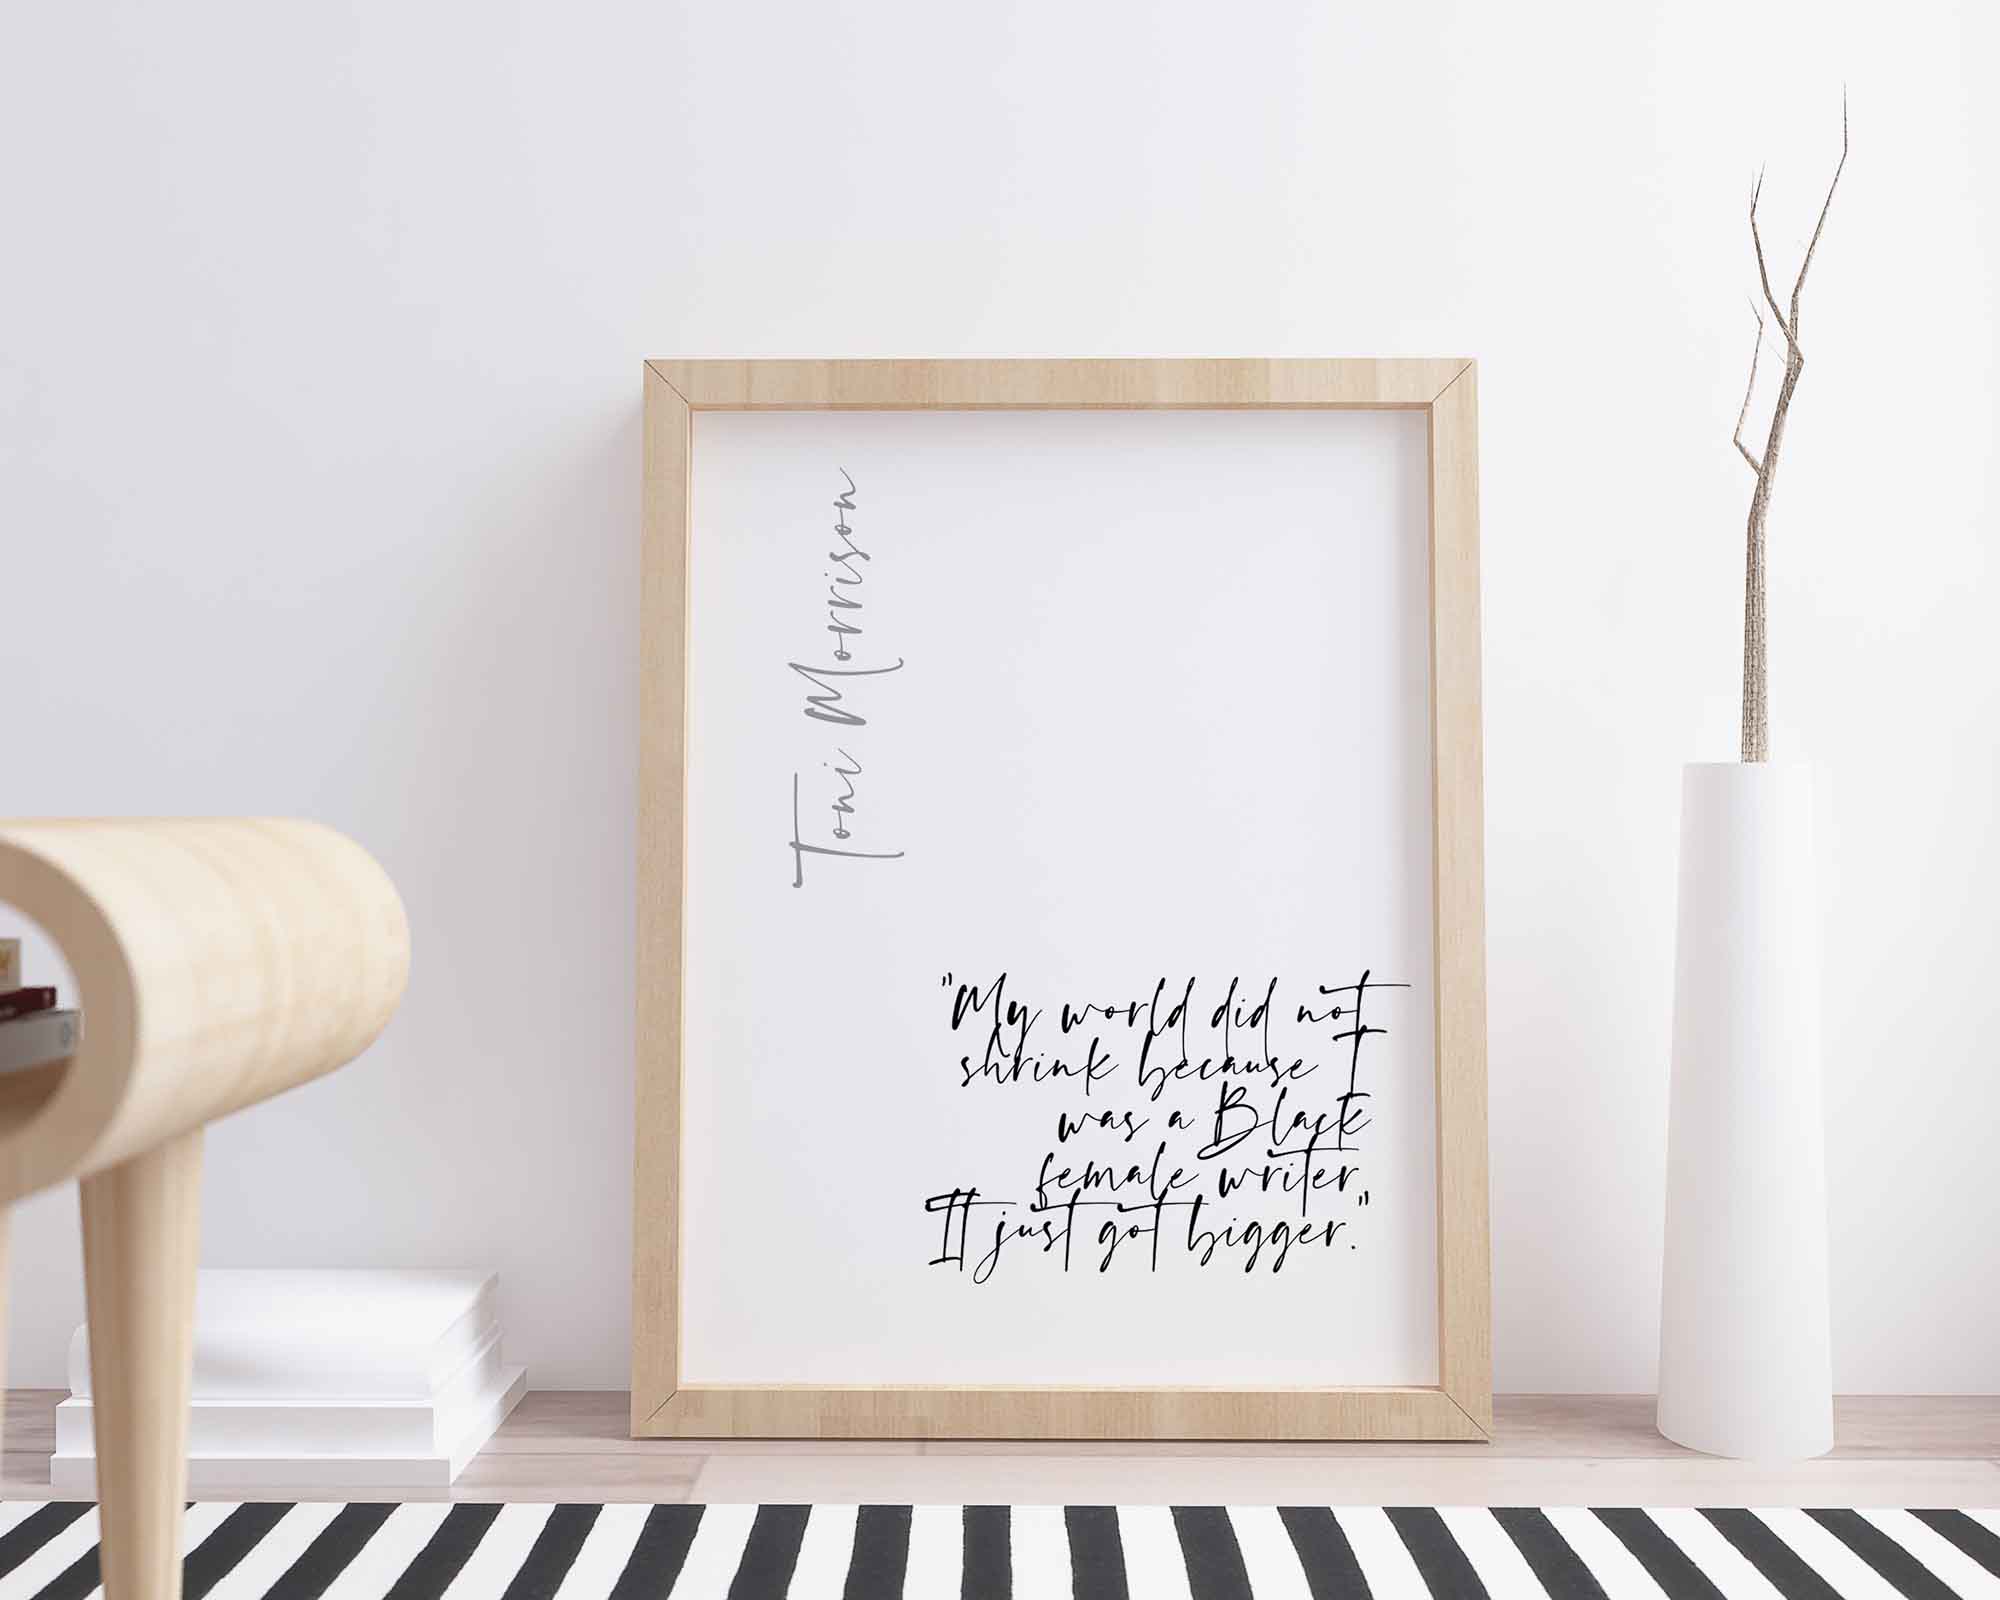 Toni Morrison
"My world did not
shrink because I
was a Black
female writer.
It just got bigger."